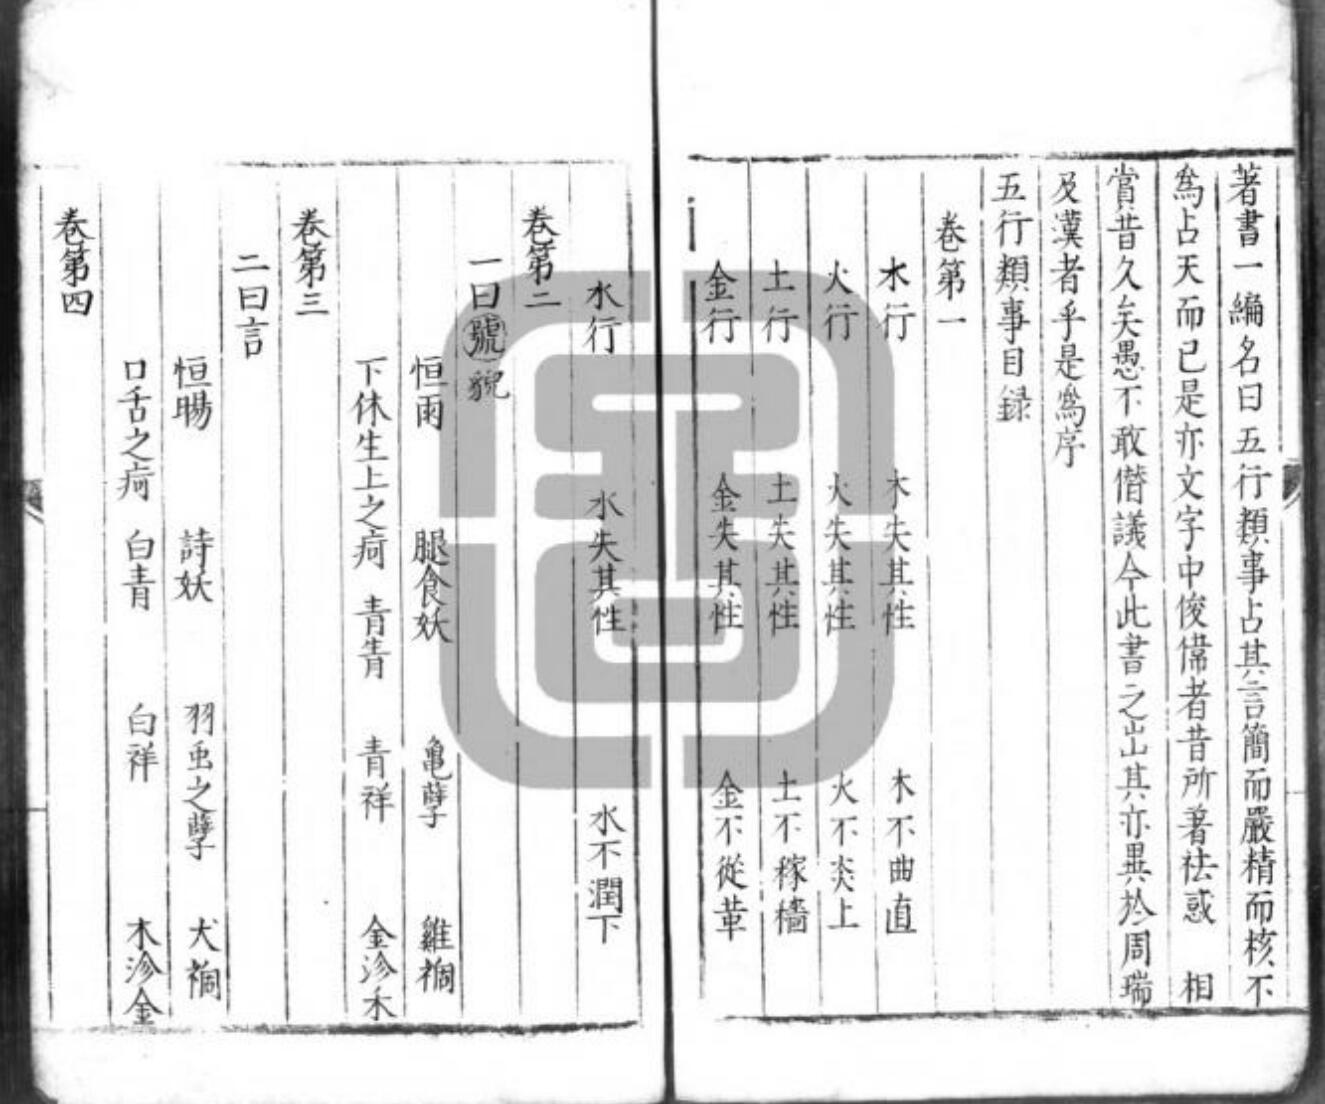 著書一編名曰五行類事占其言簡而嚴精而核不
為占天而已是亦文字中俊偉者昔所著祛惑 相
賞昔久矣愚不敢僭議今此書之出其亦異於周瑞
及漢者乎是為序
五行類事目録
卷第一
木行 木失其性 木不曲直
火行 火失其性 火不炎上
土行 土失其性 土不稼穡
金行 金失其性 金不從革
水行 水失其性 水不潤下
卷第二
一曰號貌
恒雨 腿食妖 亀孽 雞禍
下休生上之痾 青青 青祥 金沴木
卷第三
二曰言
恒暘 詩妖 羽虫之孽 犬禍
口舌之痾 白青 白祥 木沴金
卷第四